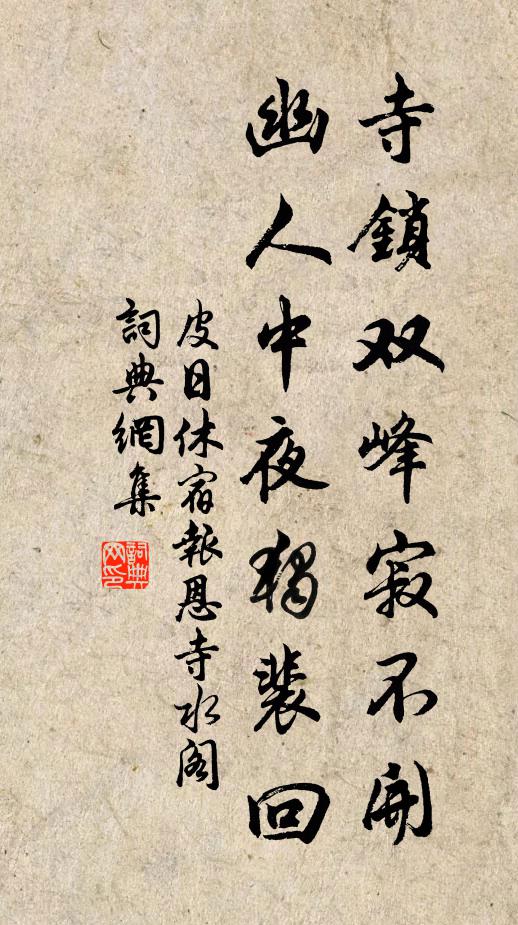 寺鎖双峰寂不開
幽人中夜獨裴回
皮日休宿報恩寺水阁
詞典網集
詞典网印